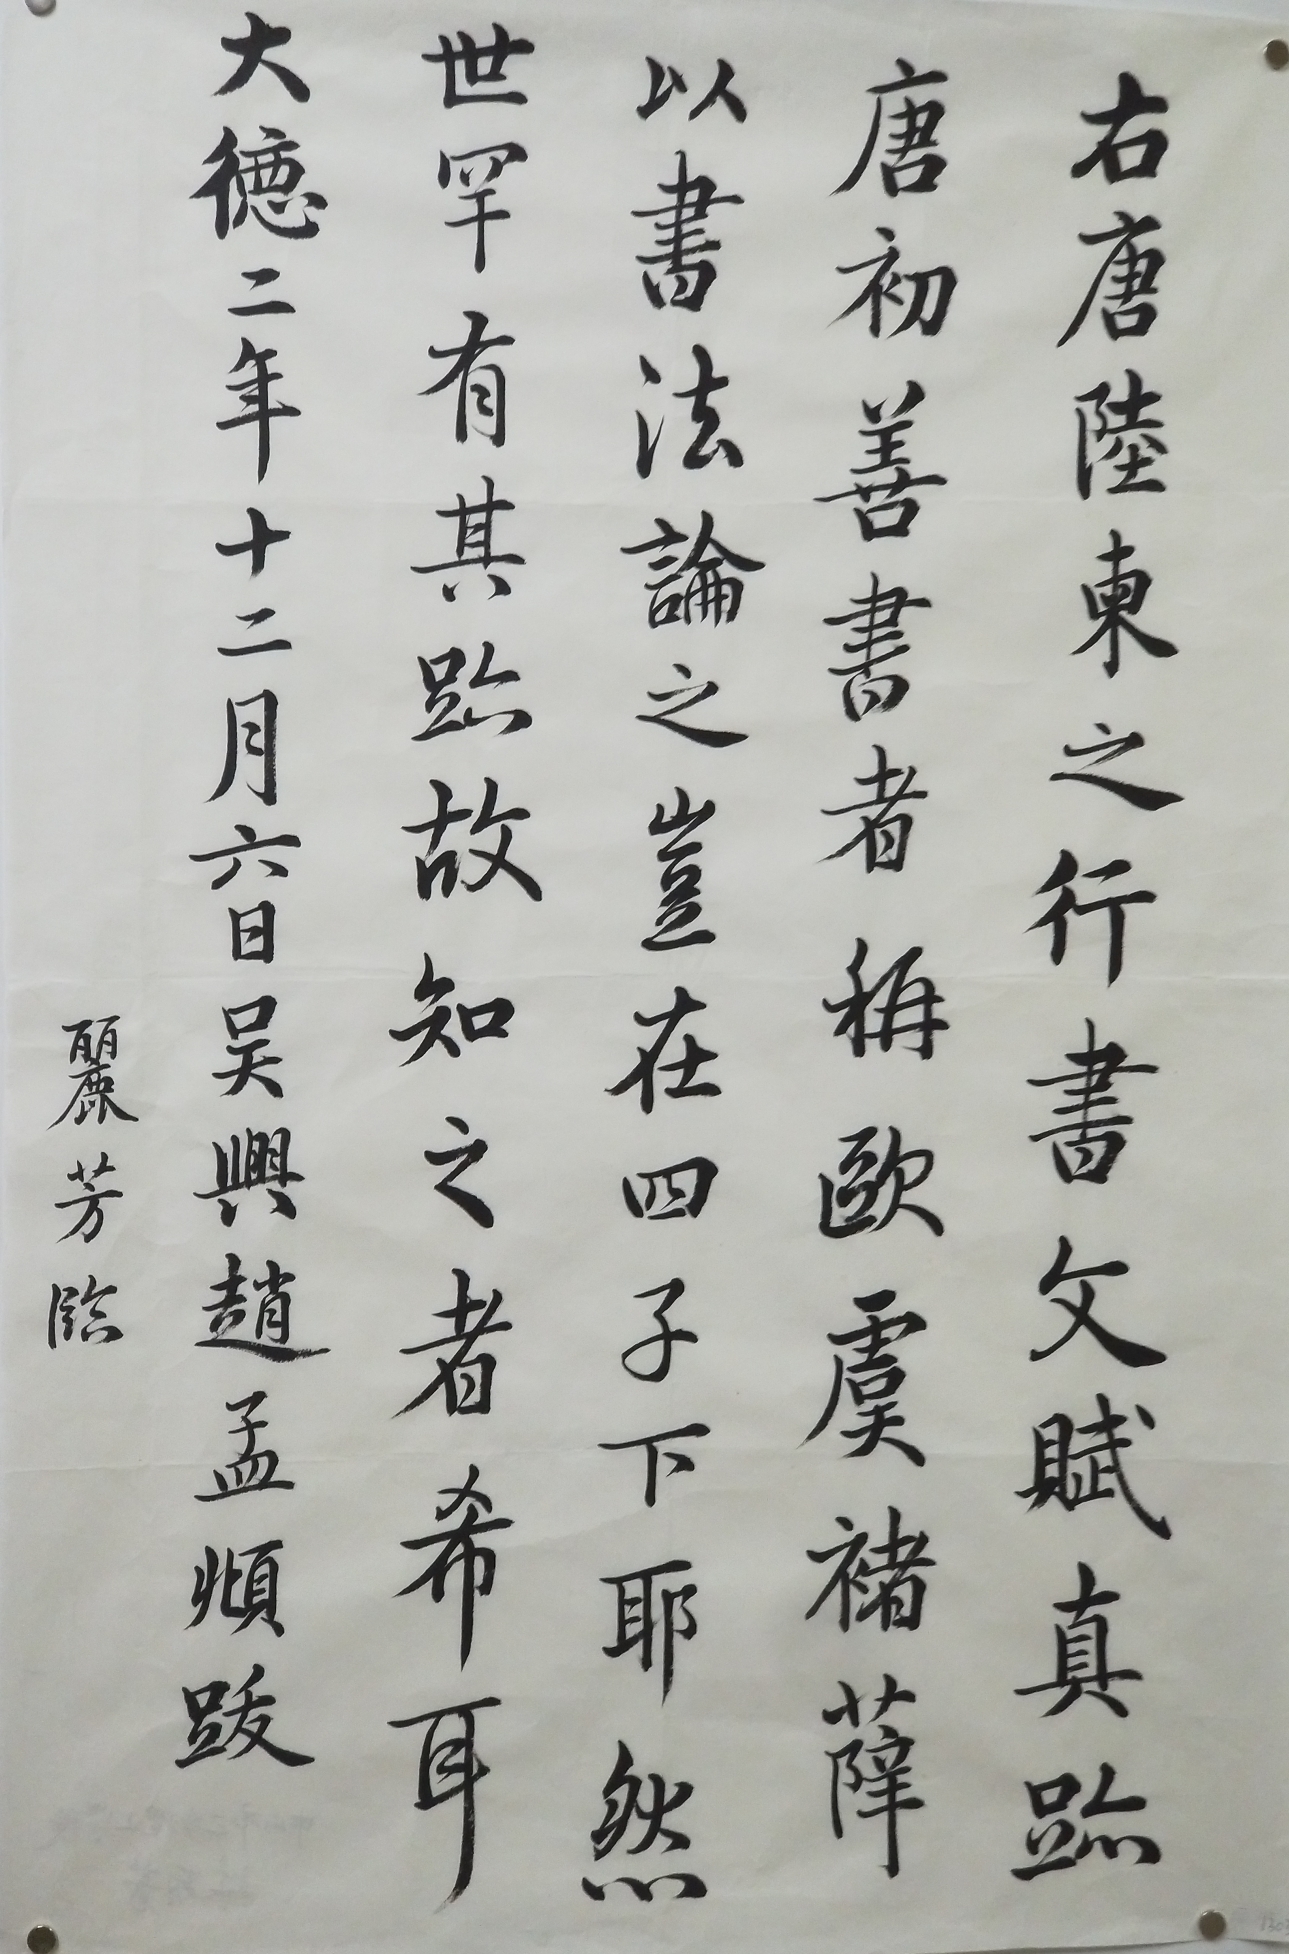 右唐陸柬之行書文賦真跡
唐初善書者稱歐虞褚薛
以書法論之豈在四子下耶然
世罕有其跡故知之者希耳
大德二年十二月六日吳興趙孟頫跋
麗芳臨